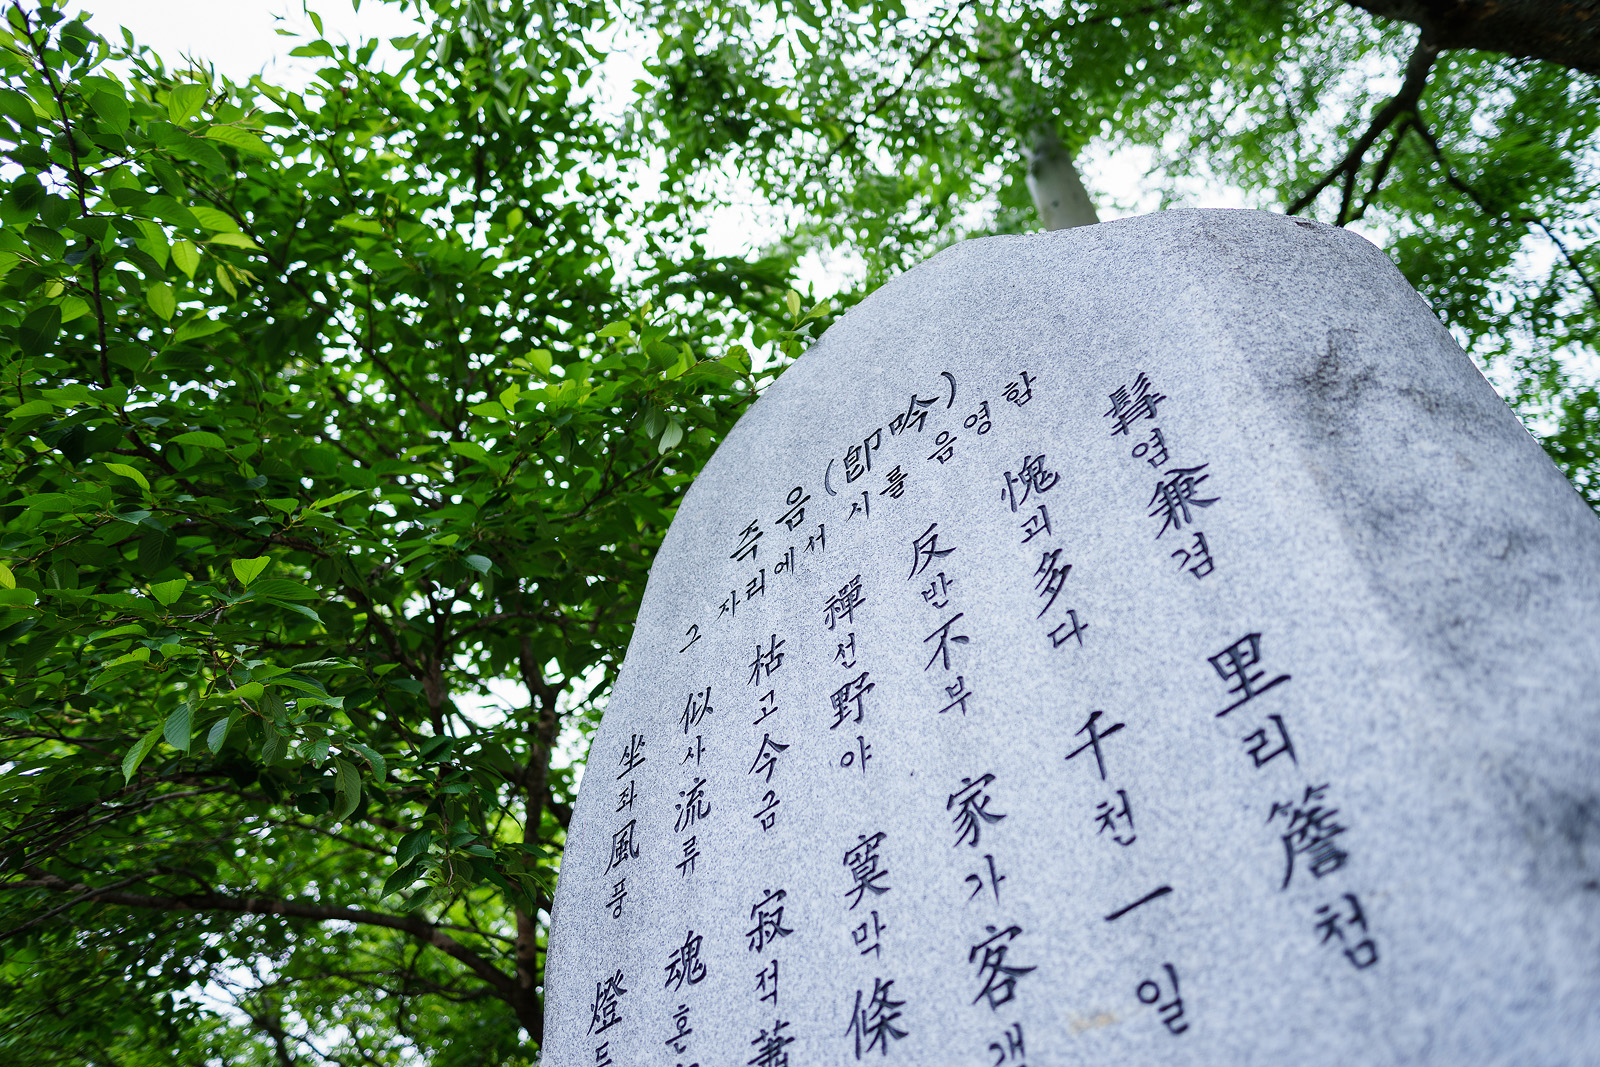 즉음(卽吟)
그 자리에서 시를 음영함
坐似枯禪反愧髥
좌사고선반괴염
風流今野不多兼
풍류금야부다겸
燈魂寂寞家千里
혼적막가천리
蕭條客一簷
일첨